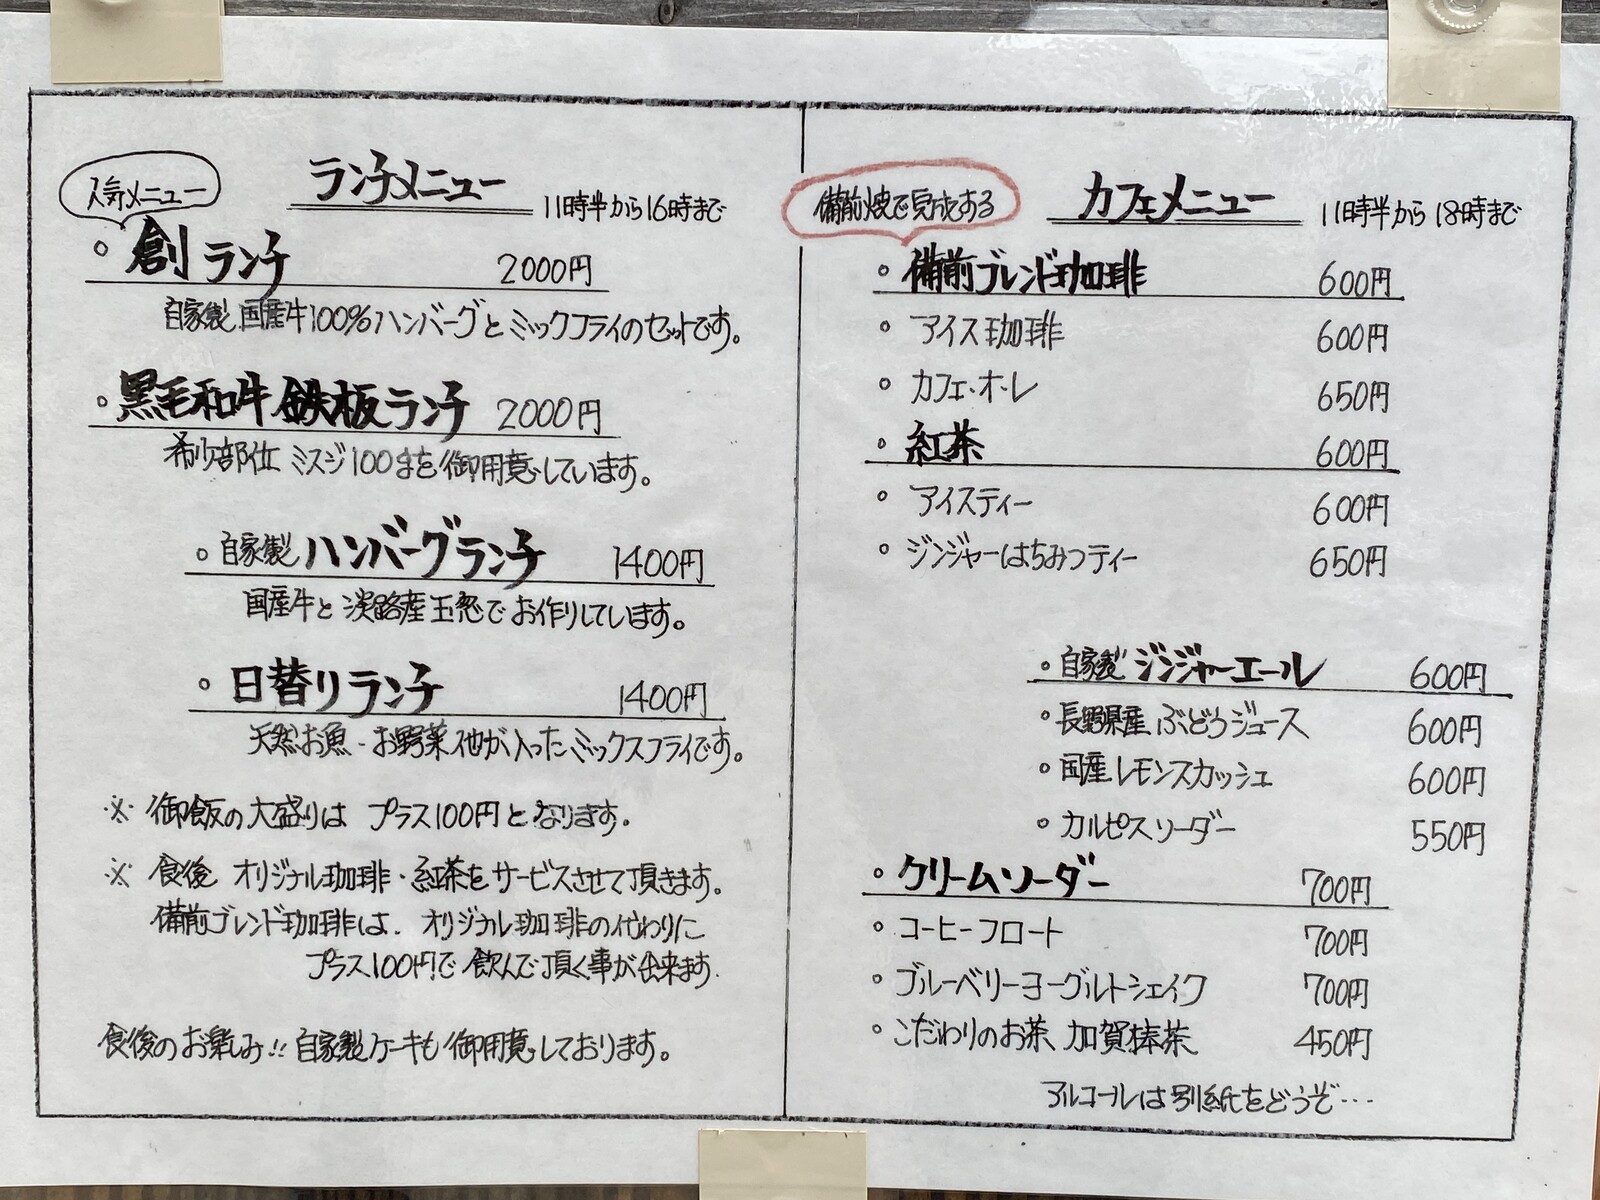 人気メニュー
ランチメニュー 11時半から16時まで
創ランチ 2000円
自家製国産牛100%ハンバーグとミックフライのセットです。
黒毛和牛鉄板ランチ 2000円
希少部位ミスジ100gを御用意しています。
自家製ハンバーグランチ 1400円
国産牛と淡路産玉葱でお作りしています。
日替りランチ 1400円
天然お魚・お野菜他が入ったミックスフライです。
※ 御飯の大盛りは プラス100円となります。
※ 食後 オリジナル珈琲・紅茶をサービスさせて頂きます。
備前ブレンド珈琲は、オリジナル珈琲の代わりに
プラス100円で飲んで頂く事が出来ます。
食後のお楽しみ!! 自家製ケーキも御用意しております。
備前焼で完成する
カフェメニュー 11時半から18時まで
備前ブレンド珈琲 600円
アイス珈琲 600円
カフェ・オ・レ 650円
紅茶 600円
アイスティー 600円
ジンジャーはちみつティー 650円
自家製ジンジャーエール 600円
長野県産ぶどうジュース 600円
国産レモンスカッシュ 600円
カルピスソーダー 550円
クリームソーダー 700円
コーヒーフロート 700円
ブルーベリーヨーグルトシェイク 700円
こだわりのお茶、加賀棒茶 450円
アルコールは別紙をどうぞ・・・